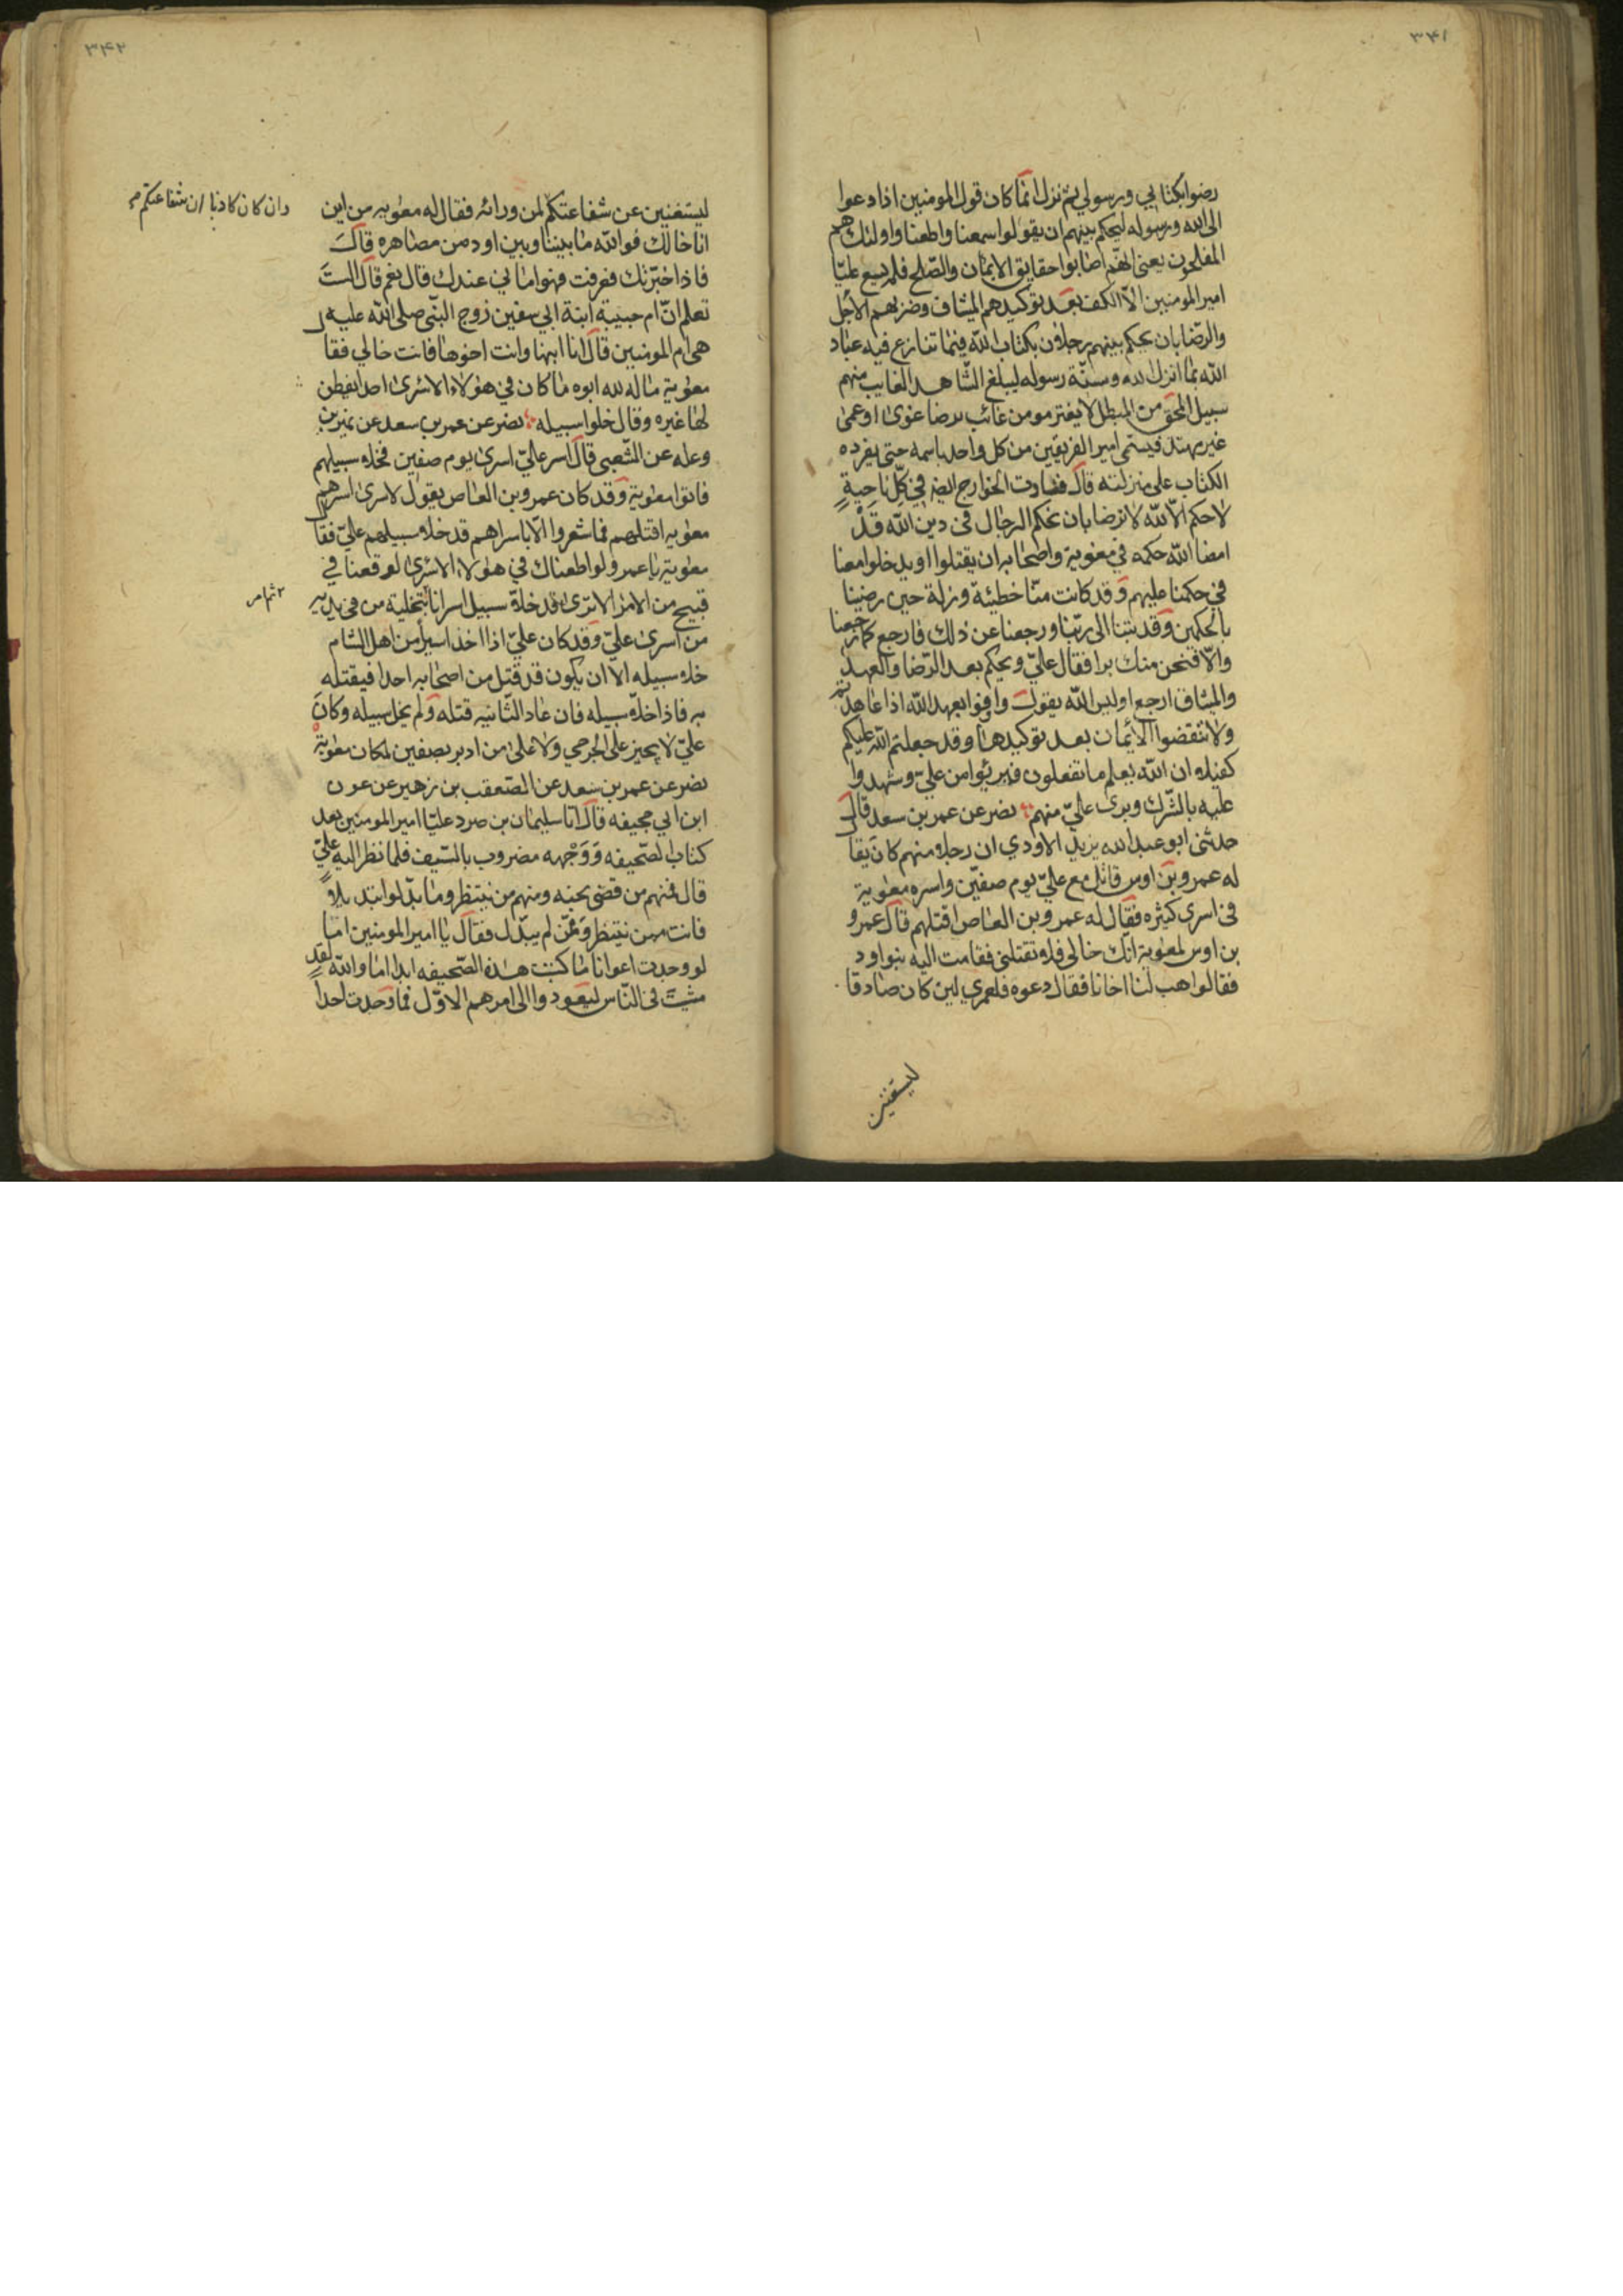 ٣٤١
رضوا بكتابي ورسولي ثم نزل انما كان قول المومنين اذا دعوا
الى الله ورسوله ليحكم بينهم ان يقولوا سمعنا واطعنا واولئك هم
المفلحون يعني انهم اصابوا حقايق الايمان والصلح فلم يسع عليّا
امير المومنين الّا الكف بعد توكيدهم الميثاق وضربهم الأجل
والرّضا بان يحكم بينهم رجلان بكتاب الله فيما تنازع فيه عباد
الله بما انزل الله وسنّة رسوله ليبلغ الشّاهد الغايب منهم
سبيل المحق من المبطل لا يغتر مومن غائب برضا غوى او عمى
غير مهتد فيسمى امير الفريقين من كل واحد باسمه حتى يفرده
الكتاب على منزلته قال فنادت الخوارج ايضه في كلّ ناحيةٍ
لا حكم الّا لله لا نرضا بان نحكم الرجال في دين الله قَدْ
امضا الله حكمه في معوية واصحابه ان يقتلوا او يدخلوا معنا
في حكمنا عليهم وقد كانت منّا خطيئة وزلة حين رضينا
بالحكمين وقد تبنا الى ربّنا ورجعنا عن ذلك فارجع كما رجعنا
والّا فنحن منك برا فقال عليّ ويحكم بعد الرّضا والعهد
والميثاق ارجع اوليس الله يقول وافوا بعهد الله اذا عاهدتم
ولا تنقضوا الأيمان بعد توكيدها وقد جعلتم الله عليكم
كفيلا ان الله يعلم ما تفعلون فبرئوا من عليّ وشهدوا
عليه بالشّرك وبرى عليّ منهم نصر عن عمر بن سعد قال
حدثنى ابو عبد الله يزيد الاودي ان رجلا منهم كان يقال
له عمرو بن اوس قاتل مع عليّ يوم صفّين واسره معوية
فى اسرى كثيره فقال له عمرو بن العاص اقتلهم قال عمرو
بن اوس لمعوية انّك خالى فلا تقتلنى فقامت اليه بنو اود
فقالوا هب لنا اخانا فقال دعوه فلعمري لين كان صادقا
ليستغنين
٣٤٢
ليستغنين عن شفاعتكم لمن ورائه فقال له معويه من اين
وان كان كاذبا ان شفاعتكم
انا خالك فوالله ما بيننا وبين اود من مصاهره قال
فاذا اخبرتك فعرفت فهو امانى عندك قال نعم قال الست
تعلم انّ ام حبيبة ابنة ابي سفين زوج النّبي صلى الله عليه
هى ام المومنين قال انا ابنها وانت اخوها فانت خالي فقال
معوية ماله لله ابوه ما كان في هولاء الاسرى احد يفطن
لها غيره وقال خلوا سبيله نصر عن عمر بن سعد عن نمير بن
وعله عن الشّعبى قال اسر عليّ اسرى يوم صفين فخلا سبيلهم
فاتوا معوية وقد كان عمرو بن العاص يقول لاسرى اسرهم
معويه اقتلهم فما شعروا الّا باسراهم قد خلا سبيلهم عليّ فقال
معوية يا عمرو لو اطعناك في هولاء الاسرى لوقعنا في
قبيح من الامر الا ترى قد خلا سبيل اسرانا بتخلية من فى يديه
٢ ثم امر
من اسرى عليّ وقد كان عليّ اذا اخذ اسيراً من اهل الشام
خلا سبيله الا ان يكون قد قتل من اصحابه احدا فيقتله
به فاذا خلا سبيله فان عاد الثّانيه قتله ولم يخل سبيله وكان
عليّ لا يجيز على الجرحي ولا على من ادبر بصفين لمكان معوية
نصر عن عمر بن سعد عن الصّعقب بن زهير عن عون
ابن ابي جحيفه قال اتا سليمان بن صرد عليّا امير المومنين بعد
كتاب الصّحيفه وَوَجْهه مضروب بالسّيف فلما نظر اليه عليّ
قال فمنهم من قضى نحبه ومنهم من ينتظر وما بدّلوا تبديلاً
فانت ممن ينتظر وَممّن لم يبدّل فقال يا امير المومنين اما
لو وجدت اعوانا ما كتبت هذه الصّحيفه ابدا اما والله لقد
مشيتَ فى النّاس ليعودوا الى امرهم الاوّل فما وجدت احداً